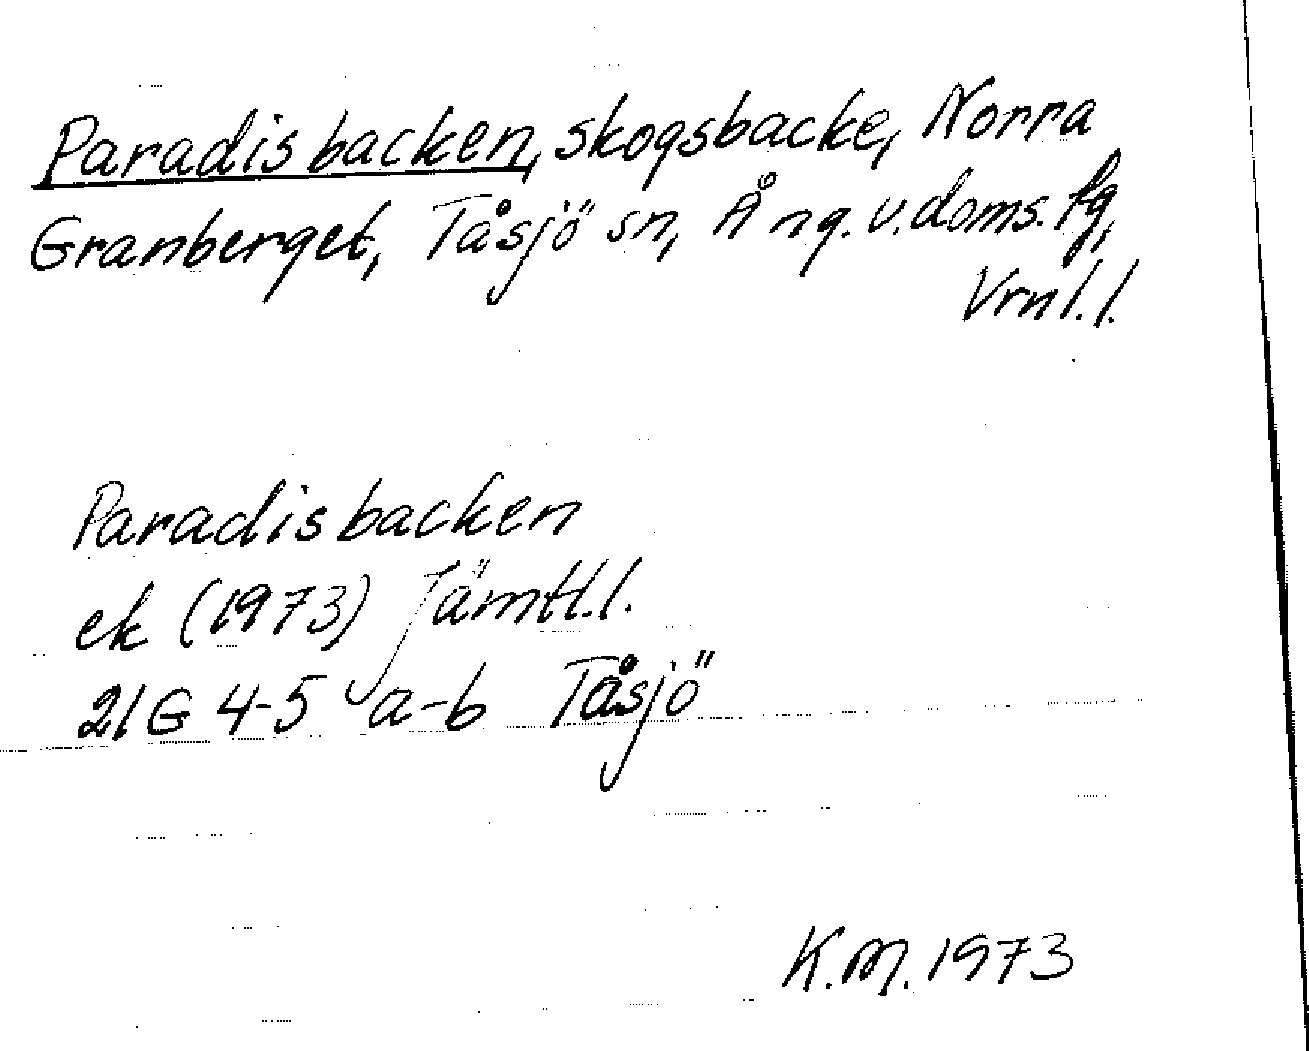 Paradisbacken, skogsbacke, Norra
Granberget, Tåsjö sn, Ång. v. doms. fg,
Vrnl. l.
Paradisbacken
ek (1973) Jämtl. l.
21G 4-5 a-b Tåsjö
K.M. 1973